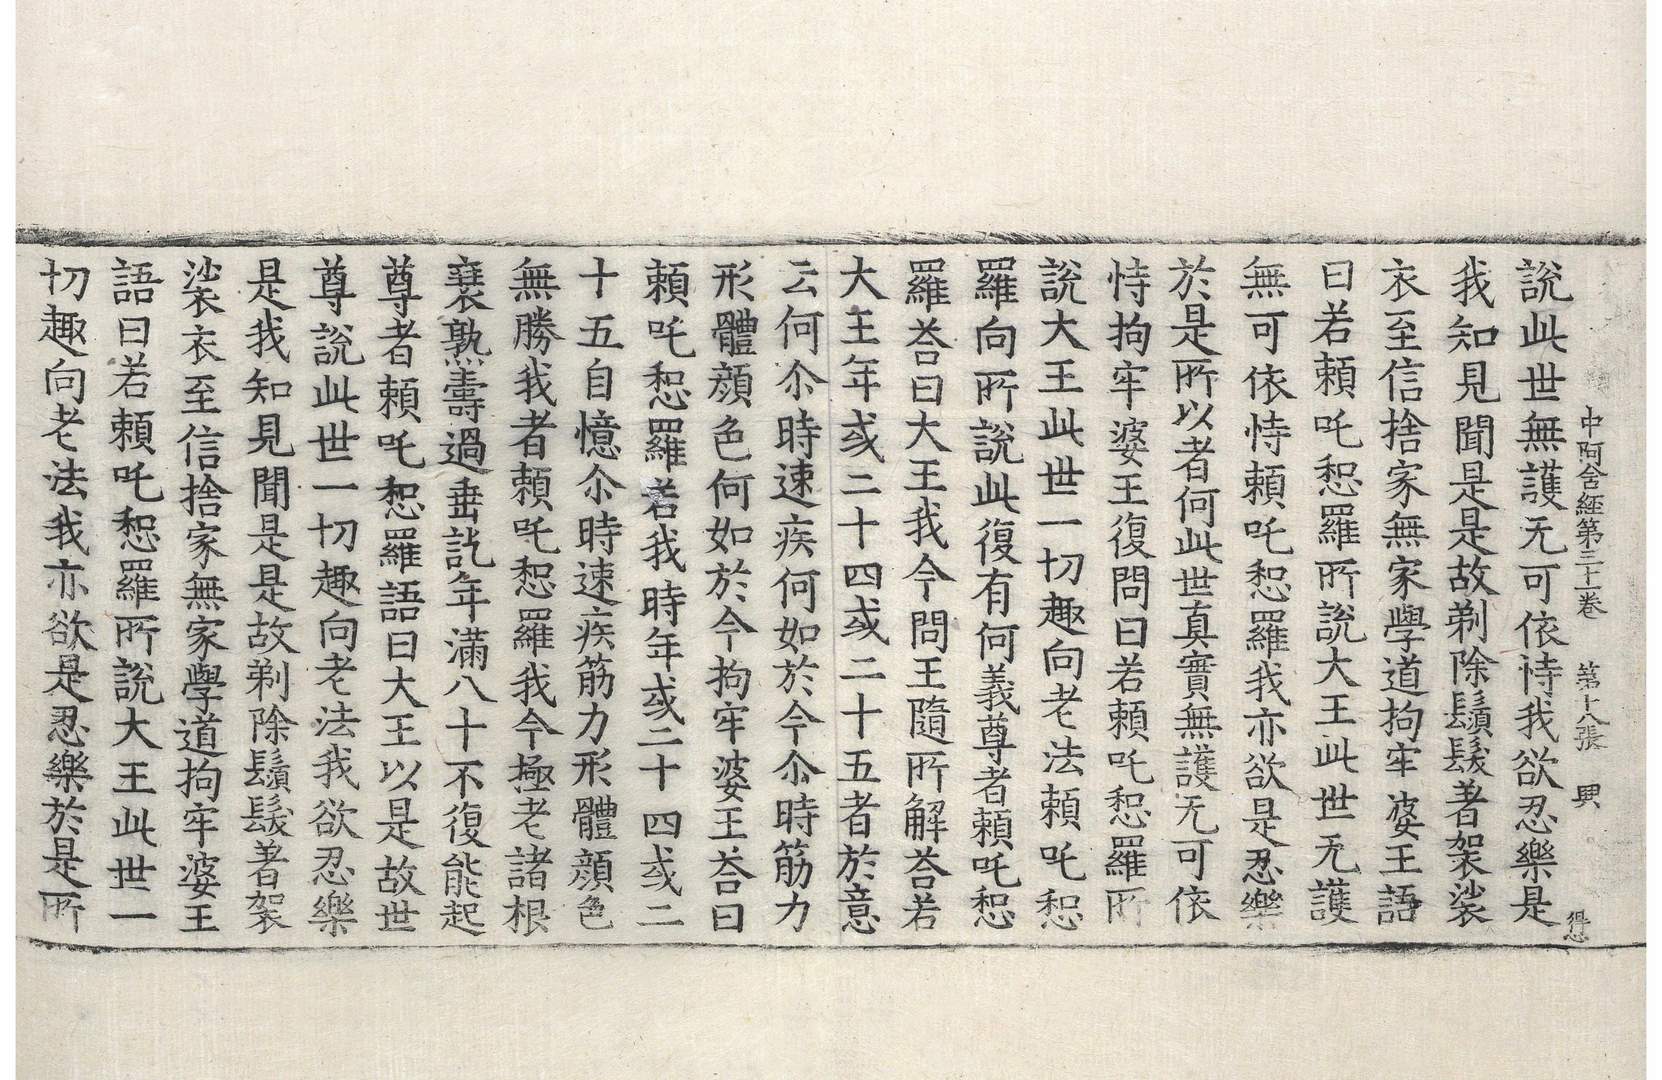 中阿含經第三十一卷　第十八張　興
說此世無護无可依恃我欲忍樂是
我知見聞是是故剃除鬚髮著袈裟
衣至信捨家無家學道拘牢婆王語
曰若賴吒惒羅所說大王此世无護
無可依恃賴吒惒羅我亦欲是忍樂
於是所以者何此世真實無護无可依
恃拘牢婆王復問曰若賴吒惒羅所
說大王此世一切趣向老法賴吒惒
羅向所說此復有何義尊者賴吒惒
羅荅曰大王我今問王隨所解荅若
大王年或二十四或二十五者於意
云何尒時速疾何如於今尒時筋力
形體顏色何如於今拘牢婆王荅曰
賴吒惒羅若我時年或二十四或二
十五自憶尒時速疾筋力形體顏色
無勝我者賴吒惒羅我今極老諸根
衰熟壽過垂訖年滿八十不復能起
尊者賴吒惒羅語曰大王以是故世
尊說此世一切趣向老法我欲忍樂
是我知見聞是是故剃除鬚髮著袈
裟衣至信捨家無家學道拘牢婆王
語曰若賴吒惒羅所說大王此世一
切趣向老法我亦欲是忍樂於是所